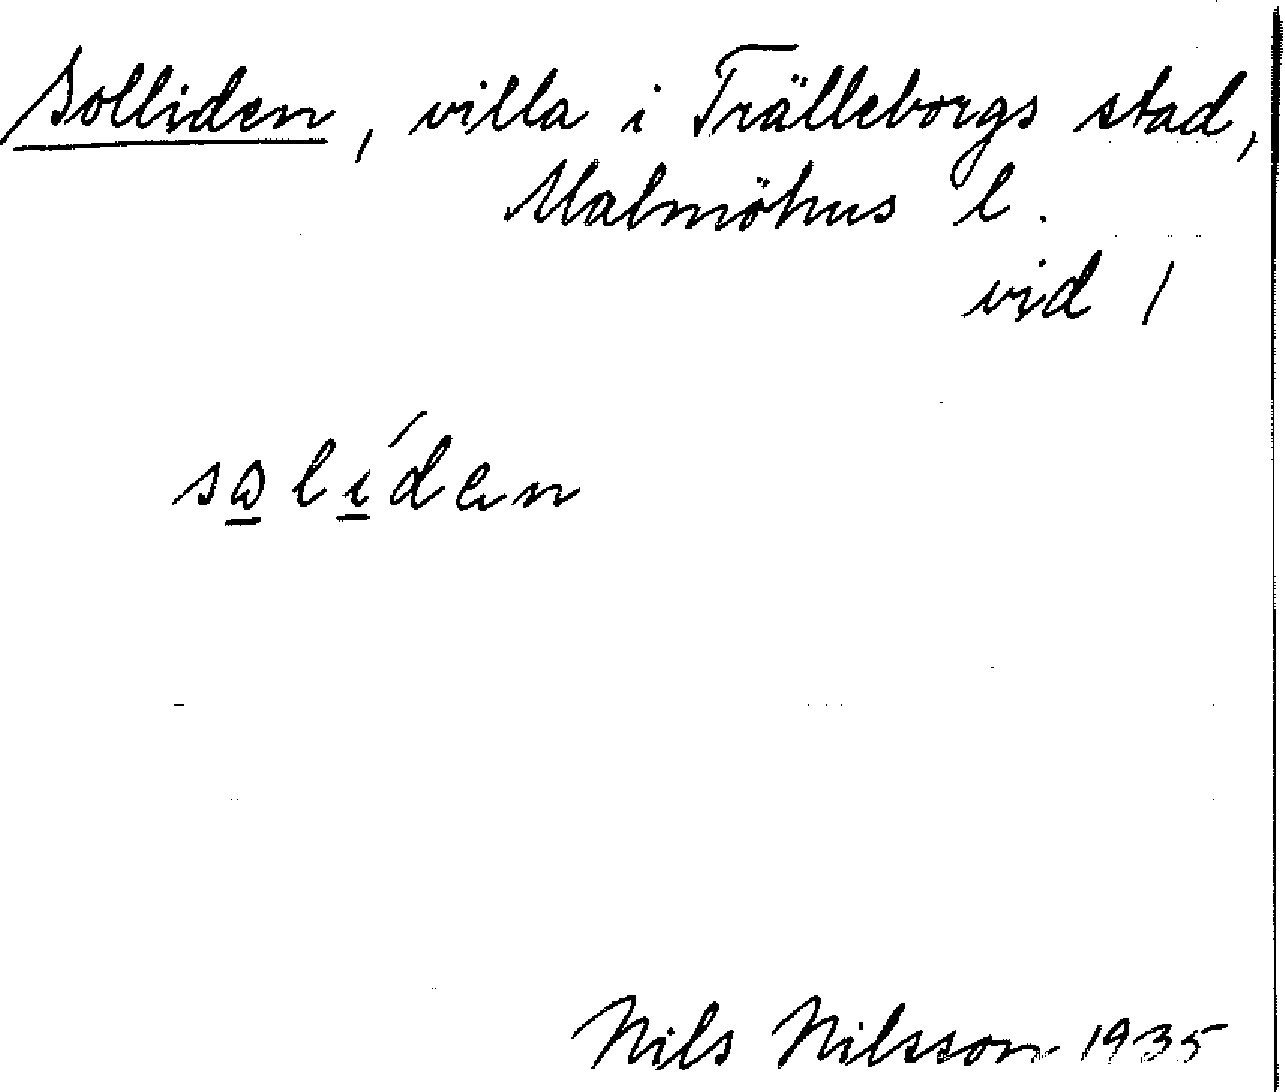 Solliden, villa i Trälleborgs stad,
Malmöhus l.
vid 1
sɷlíden
Nils Nilsson 1935